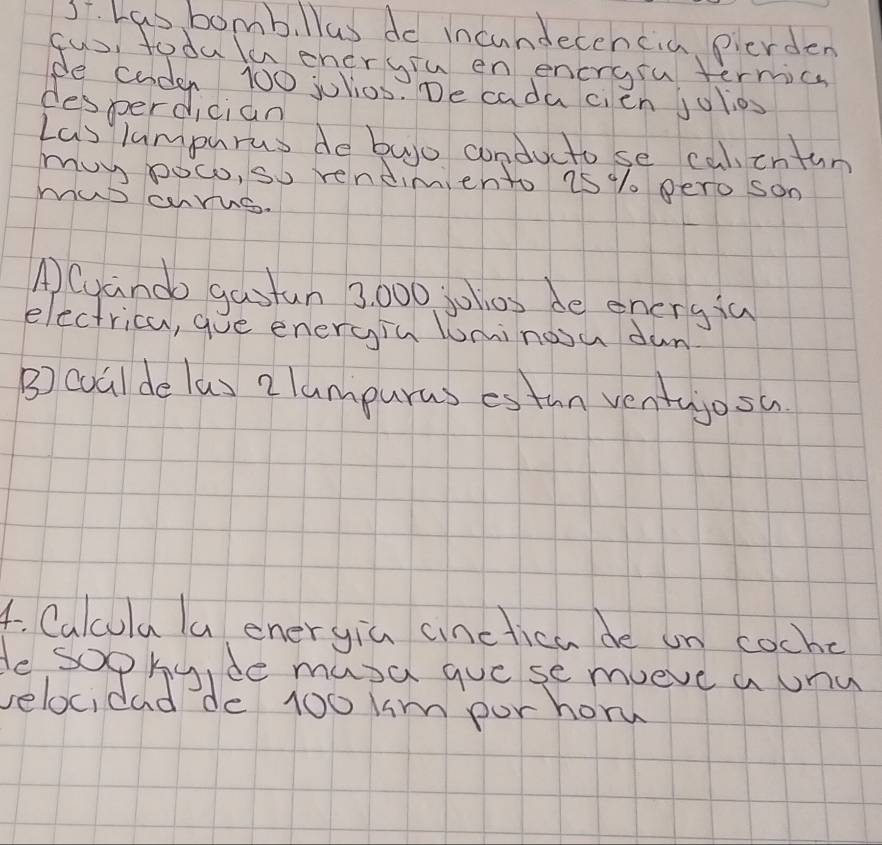 3ª. Las bombillas de incandecencia pierden
casi toda la energía en energía termica
de caden 100 julios. De cada cien julios
desperdician
Las lamparas de bajo conducto se calientan
muy poco, su rendimiento 25% pero son
mas caras.
A) Cuando gastan 3.000 julios de energía
electrica, que energia luminosa dan.
B) Cuál de las 2 lamparas estan ventajosa.
4. Calcula la energía cinetica de un coche
de 500 kg, de masa que se mueve a una
velocidad de 100 km por hora